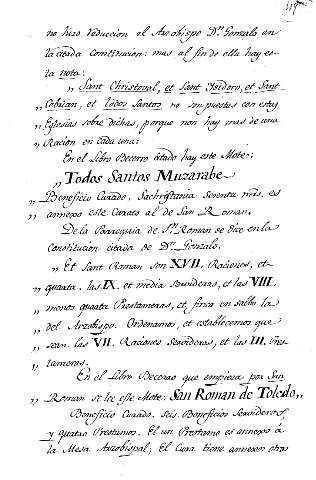 419
no hizo reduccion el Arzobispo Dn. Gonzalo en
la citada Constitucion: mas al fin de ella hay es-
ta nota:
„ Sant Christoval, et Sant Ysidoro, et Sant
„ Cebrian, et todos Santos, no son puestas con estas
„ Eglesias sobre dichas, porque non hay mas de una
„ Racion en cada una:
En el Libro Becerro citado hay este Mote:
„ Todos Santos Muzarabe
„ Beneficio Curado, Sachristania Serenta mrs. es
„ annexo este Curato al de San Roman.
De la Parroquia de Sn. Roman se dice en la
Constitucion citada de Dn. Gonzalo.
„ Et Sant Roman son XVII. Raciones, et
„ quarta, las IX. et media Servideras, et las VIII.
„ menos quarta Prestameras, et finco en salbo la
„ del Arzobispo. Ordenamos, et establecemos que
„ sean las VII. Raciones Servideras, et las III. Pres-
„ tameras.
En el Libro Becerro que empieza por San
„ Roman se lee este Mote: San Roman de Toledo,
Beneficio Curado. seis Beneficios Servideros,
y quatro Prestamos. El un Prestamo es annexo á
la Mesa Arzobispal; El Cura tiene annexos otros